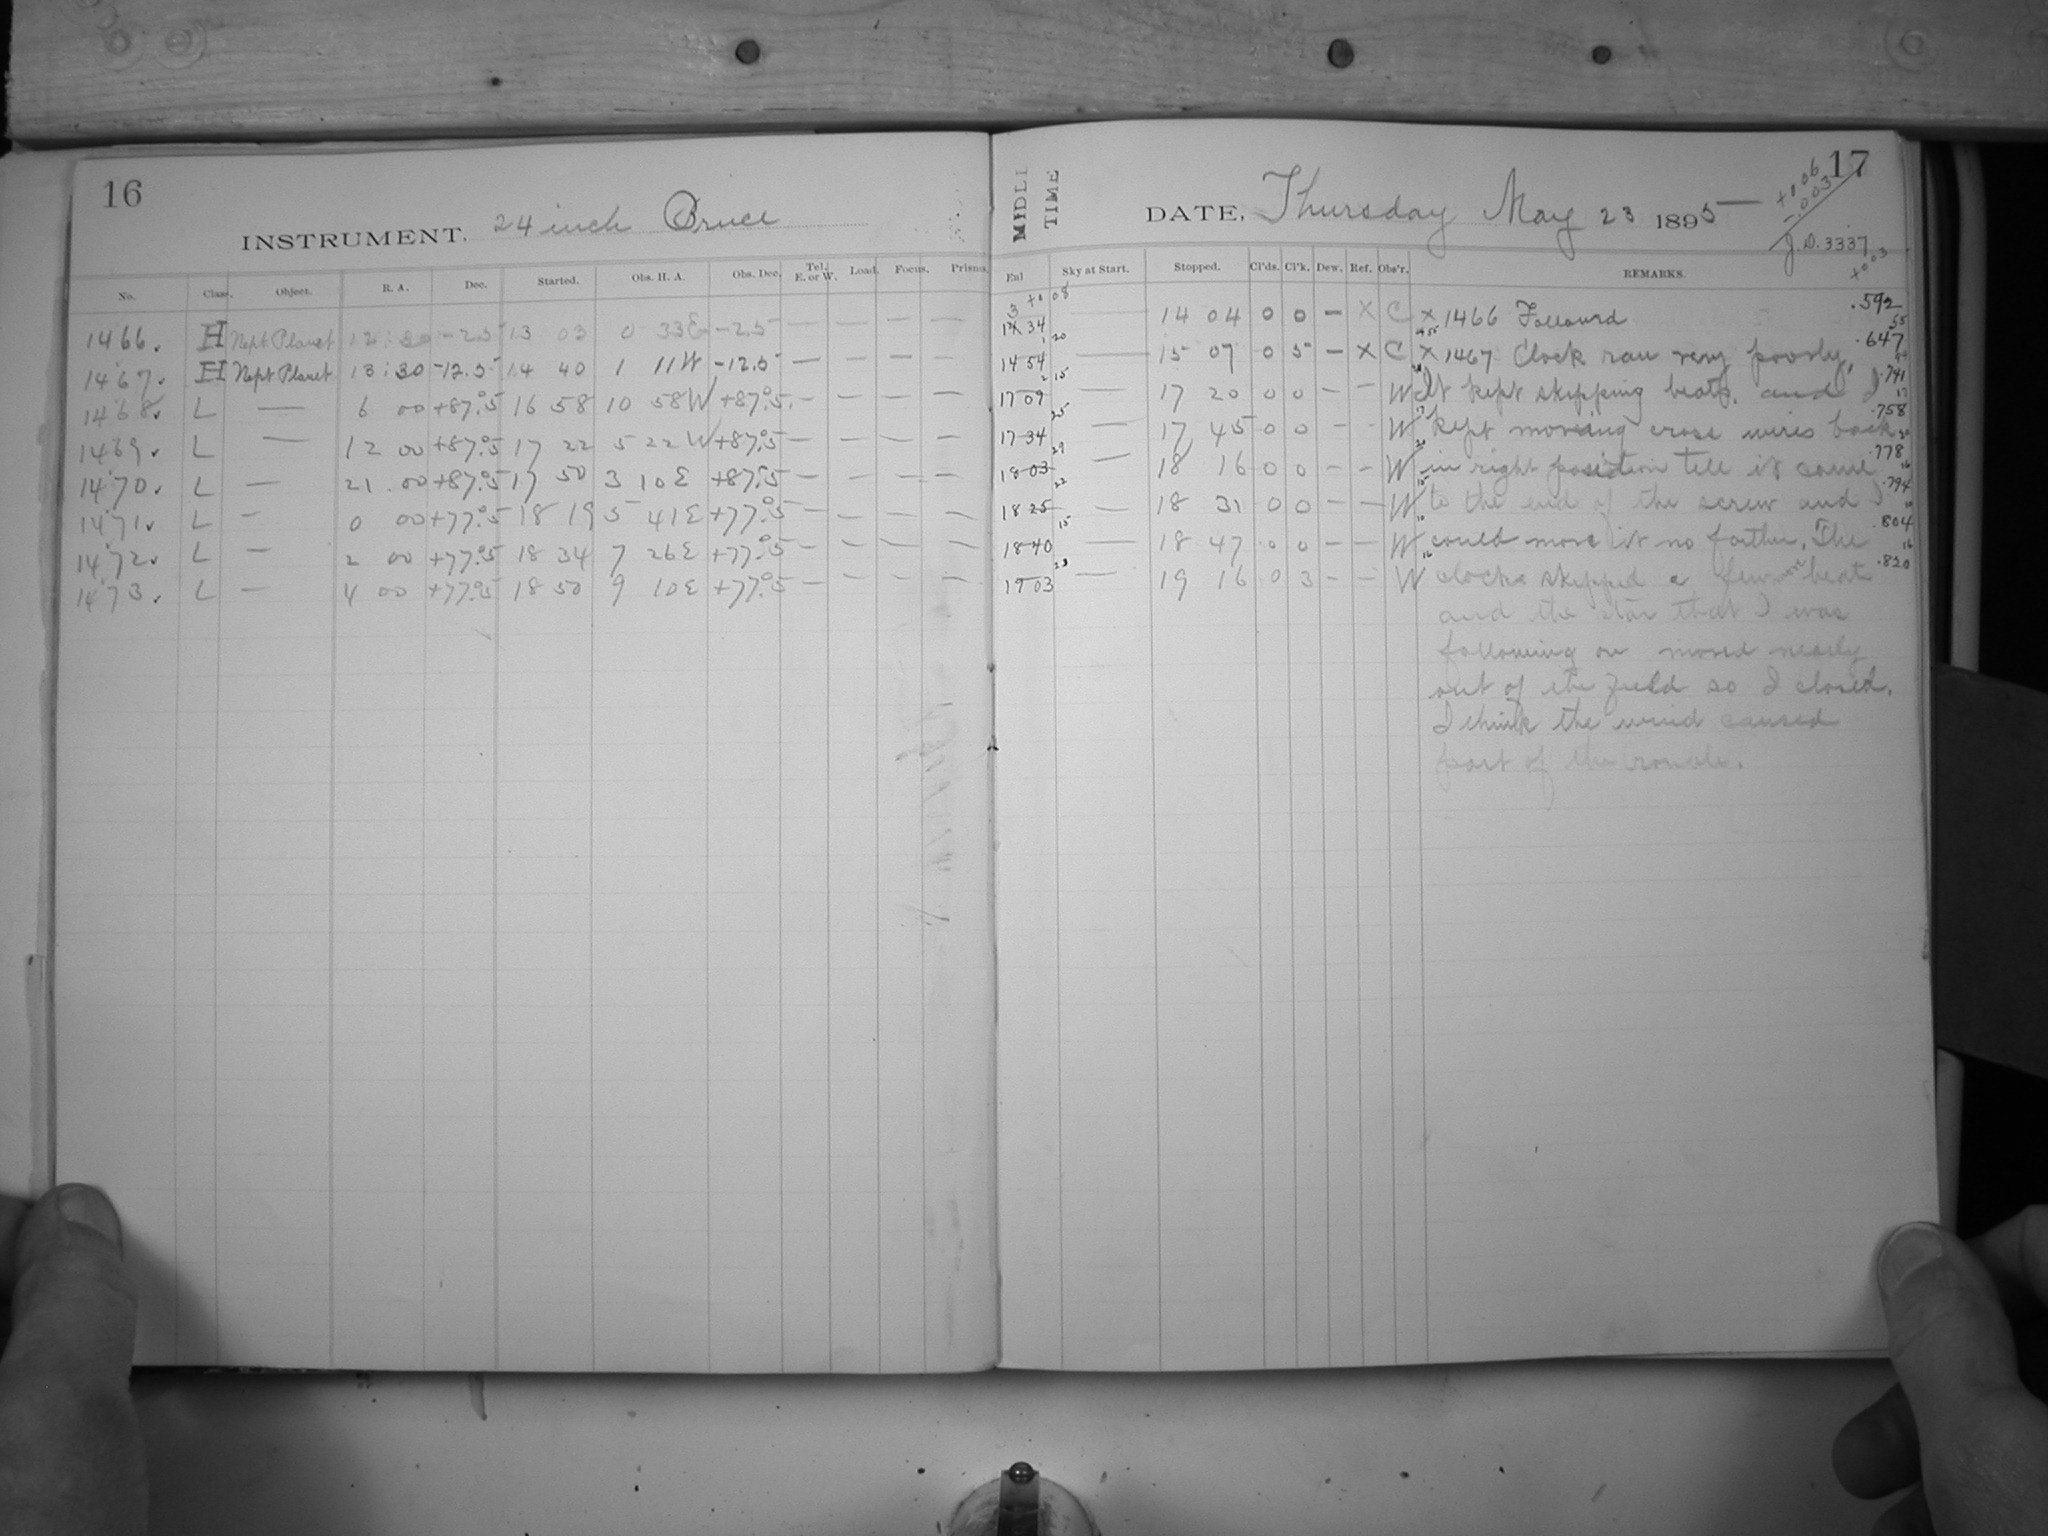 16
INSTRUMENT. 24 inch Bruce
No. Class. Object. R. A. Dec. Started. Obs. H. A. Obs. Dec. Tel. E. or W. Load. Focus. Prisms.
1466. H Nept Planet 12:30 -2.5 13 03 0 33E -2.5 — — — —
1467. H Nept Planet 13:30 -12.5 14 40 1 11W -12.5 — — — —
1468. L — 6 00 +87°.5 16 58 10 58W +87°.5 — — — —
1469. L — 12 00 +87°.5 17 22 5 22W +87°.5 — — — —
1470. L — 21 00 +87°.5 17 50 3 10E +87°.5 — — — —
1471. L — 0 00 +77°.5 18 19 5 41E +77°.5 — — — —
1472. L — 2 00 +77°.5 18 34 7 26E +77°.5 — — — —
1473. L — 4 00 +77°.5 18 50 9 10E +77°.5 — — — —
17
MIDLI TIME
DATE, Thursday May 23 1895
J.D. 3337
Sky at Start. Stopped. Cl'ds. Cl'k. Dew. Ref. Obs'r. REMARKS.
— 14 04 0 0 — X C X 1466 Followed .592
14 54 — 15 07 0 5 — X C X 1467 Clock ran very poorly, .647
17 09 — 17 20 0 0 — — W It kept skipping beats, and I .741
17 34 — 17 45 0 0 — — W kept moving cross wires back .758
18 03 — 18 16 0 0 — — W in right position till it came .778
18 25 — 18 31 0 0 — — W to the end of the screw and I .794
18 40 — 18 47 0 0 — — W could move it no farther. The .804
19 03 — 19 16 0 3 — — W clock skipped a few more beat .820
and the star that I was
following on moved nearly
out of the field so I closed.
I think the wind caused
part of the trouble.